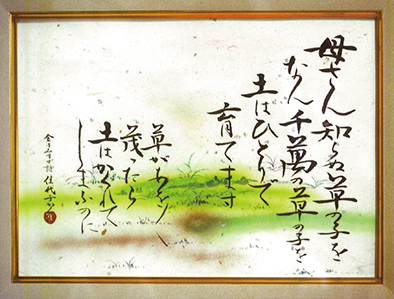 母さん知らぬ草の子を
なん千萬の草の子を
土はひとりで
育てます
草があを〱
茂ったら
土はかくれて
しまふのに
金子みすゞ詩 佳代子